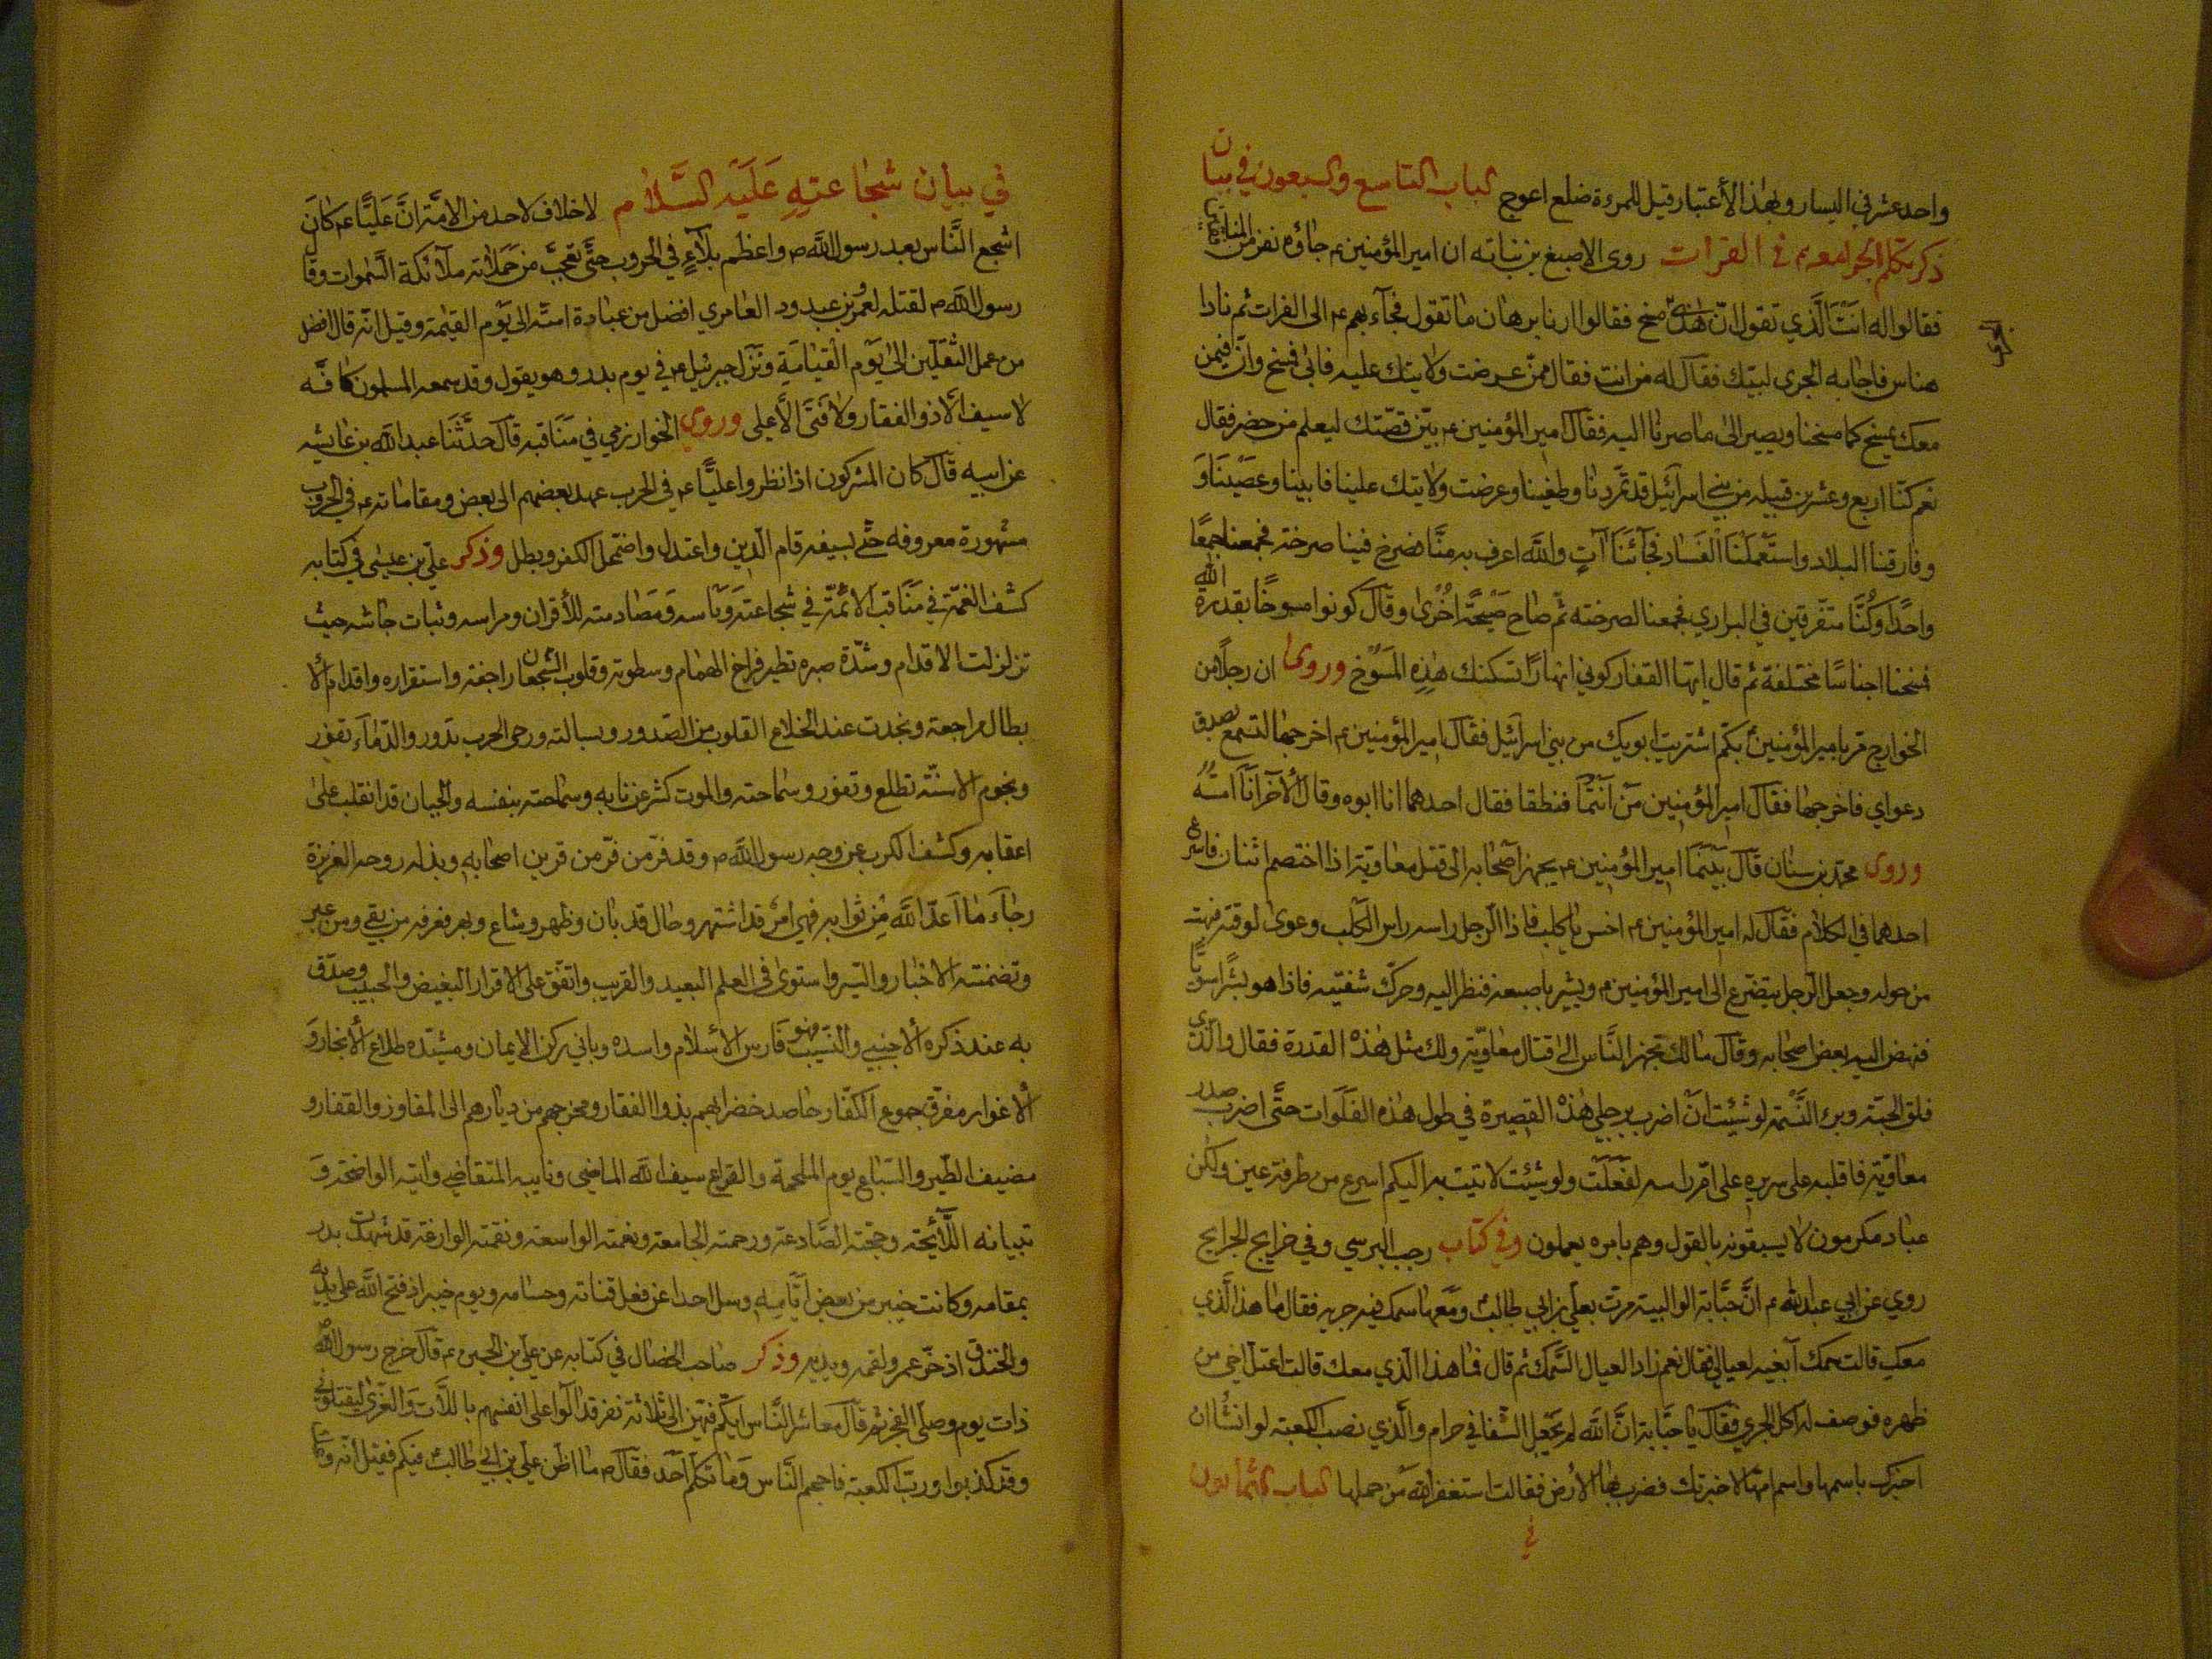 واحد عشر في اليسار وبهذا الأعتبار قيل للمرءة ضلع اعوج الباب التاسع والسبعون في بيان
ذكر تكلم الجرّي معه ع في الفرات روى الاصبغ بن نباته ان امير المؤمنين ع جاؤه نفر من المنافقين
فقالوا له انت الَّذي تقول انّ هذا الجرّي مسخ فقالوا ارنا برهان ما تقول فجآء بهم ع الى الفرات ثم نادا
هناس فاجابه الجري لبيك فقال له من انت فقال ممّن عرضت ولايتك عليه فابى فمسخ وانّ فيمن
معك يمسخ كما مسخنا ويصير الى ما صرنا اليه فقال امير المؤمنين ع بيّن قصّتك ليعلم من حضر فقال
نعم كنّا اربع وعشرين قبيله من بني اسرآئيل قد تمرّدنا وطغينا وعرضت ولايتك علينا فابينا وعصينا و
وفارقنا البلاد واستعملنا الفساد فجآئنا آتٍ والله اعرف به منّا فصرخ فينا صرخة فجمعنا جمعًا
واحدًا وكنّا متفرّقين في البراري فجمعنا لصرخته ثمّ صاح صيحة اخرى وقال كونوا مسوخًا بقدرة الله
فمسخنا اجناسًا مختلفة ثم قال ايتها القفار كوني انهارًا تسكنك هذه المسوخ وروى ان رجلًا من
الخوارج مرّ بامير المؤمنين بكم اشتريت ابويك من بني اسرآئيل فقال امير المؤمنين ع اخرجها لتسمع بصدق
دعواي فاخرجها فقال امير المؤمنين من انتما فنطقا فقال احدهما انا ابوه وقال الآخر انا امّه
وروى محمّد بن سنان قال بينما امير المؤمنين ع يجهز اصحابه الى قتل معاوية اذا اختصم اثنان فاسرع
احدهما في الكلام فقال له امير المؤمنين ع اخس يا كلب فاذا الرجل راسه راس الكلب وعوى لوقته فبهت
من حوله وجعل الرجل يتضرع الى امير المؤمنين م ويشير باصبعه فنظر اليه وحرّك شفتيه فاذا هو بشرًا سويًا
فنهض اليه بعض اصحابه وقال مالك تجهز النَّاس الى قتال معاوية ولك مثل هذه القدرة فقال والّذي
فلق الحبّة وبرء النَّسمة لو شئت ان اضرب برجلي هذه القصيرة في طول هذه الفلوات حتّى اضرب صدر
معاوية فاقلبه على سريره على امّ راسه لفعلت ولو شئت لاتيت به اليكم اسرع من طرفة عين ولكن
عباد مكرمون لا يسبقونه بالقول وهم بامره يعملون وفي كتاب رجب البرسي وفي خرايج الجرايح
روي عن ابي عبد الله ع انّ حبّابة الوالبيته مرّت بعلي بن ابي طالب ومعها سمك فيه جريه فقال ما هذا الّذي
معك قالت سمك آبغيه لعيالي فقال نعم زاد العيال السَّمك ثم قال فما هذا الّذي معك قالت اعتل اخي من
ظهره فوصف له اكل الجري فقال يا حبّابة انّ الله لم يجعل الشّفا في حرام والّذي نصب الكعبة لو انشاء ان
اخبرك باسمها واسم امّها لاخبرتك فضرب بها الارض فقالت استغفر الله من حملها الباب الثمانون
في
في بيان شجاعته عليه السَّلام لا خلاف لاحد من الامّة انّ عليًّا ع كان
اشجع النَّاس بعد رسول الله ص واعظم بلآءٍ في الحروب حتَّى تعجّب من حملاته ملآئكة السَّموات وقا
رسول الله ص لقتله لعمرو بن عبد ود العامري افضل من عبادة امتّى الى يوم القيمة وقيل انّه قال افضل
من عمل الثقلين الى يوم القيامة ونزل جبرئيل ع في يوم بدر وهو يقول وقد سمعه المسلمون كافّه
لا سيف الّا ذو الفقار ولا فتى الّا علي وروى الخوارزمي في مناقبه قال حدَّثنا عبد الله بن عايشه
عن ابيه قال كان المشركون اذا نظروا عليًّا ع في الحرب عهد بعضهم الى بعض ومقاماته ع في الحروب
مشهورة معروفه حتّى بسيفه قام الدّين واعتدل واضمحل الكفر وبطل وذكر علي بن عيسى في كتابه
كشف الغمّة في مناقب الائمّة في شجاعته وباسه ومصادمته للأقران ومراسه وثبات جاشه حيث
تزلزلت الاقدام وشدّة صبره تطير فراخ الهمام وسطوته وقلوب الشجعان راجفة واستقراره واقدام الا
بطال مراجعة ونجدته عند انخلاع القلوب من الصّدور وبسالته ورحى الحرب تدور والدّماء تفور
ونجوم الاسنّة تطلع وتغور وسماحته والموت كشر عن نابه وسماحته بنفسه والجبان قد انقلب على
اعقابه وكشف الكرب عن وجه رسول الله ص وقد فرّ من فرّ من قرين اصحابه وبذله روحه العزيزة
رجآء ما اعدّ الله من ثوابه فهي امر قد اشتهر وحال قد بان وظهر وشاع وبهر فعرفه من بقى ومن غبر
وتضمنته الاخبار والسّير واستوى في العلم البعيد والقريب واتفق على الاقرار البغيض والحبيب وصدّق
به عند ذكره الاجنبي والنّسيب فهو فارس الاسلام واسده وباني ركن الايمان ومشيّده طلاع الانجاد و
الاغوار مفرق جموع الكفّار حاصد خضرابهم بذوا الفقار ومخرجهم من ديارهم الى المفاوز والقفار و
مضيف الطّير والسّباع يوم الملحمة والقراع سيف الله الماضي ونايبه المتقاضي وايته الواضحة و
تبيانه اللّايحة وحجّته الصَّادعة ورحمته الجامعة ونعمته الواسعة ونقمته الوازعة قد شهدت بدر
بمقامه وكانت حنين من بعض ايّامه وسل احدا عن فعل قناته وحسامه ويوم خيبر اذ فتح الله على يديه
والخندق اذ خرّ عمرو لفمه ويديه وذكر صاحب الخصال في كتابه عن علي بن الحسين ع قال خرج رسول الله
ذات يوم وصلّى الفجر ثم قال معاشر النَّاس ايكم ينهض الى ثلاثة نفر قد آلوا على انفسهم باللّات والعزّى ليقتلوني
وقد كذبوا وربّ الكعبة فاحجم النَّاس وما تكلّم احد فقال ص ما اظن علي بن ابي طالب فيكم فقيل انّه وعك